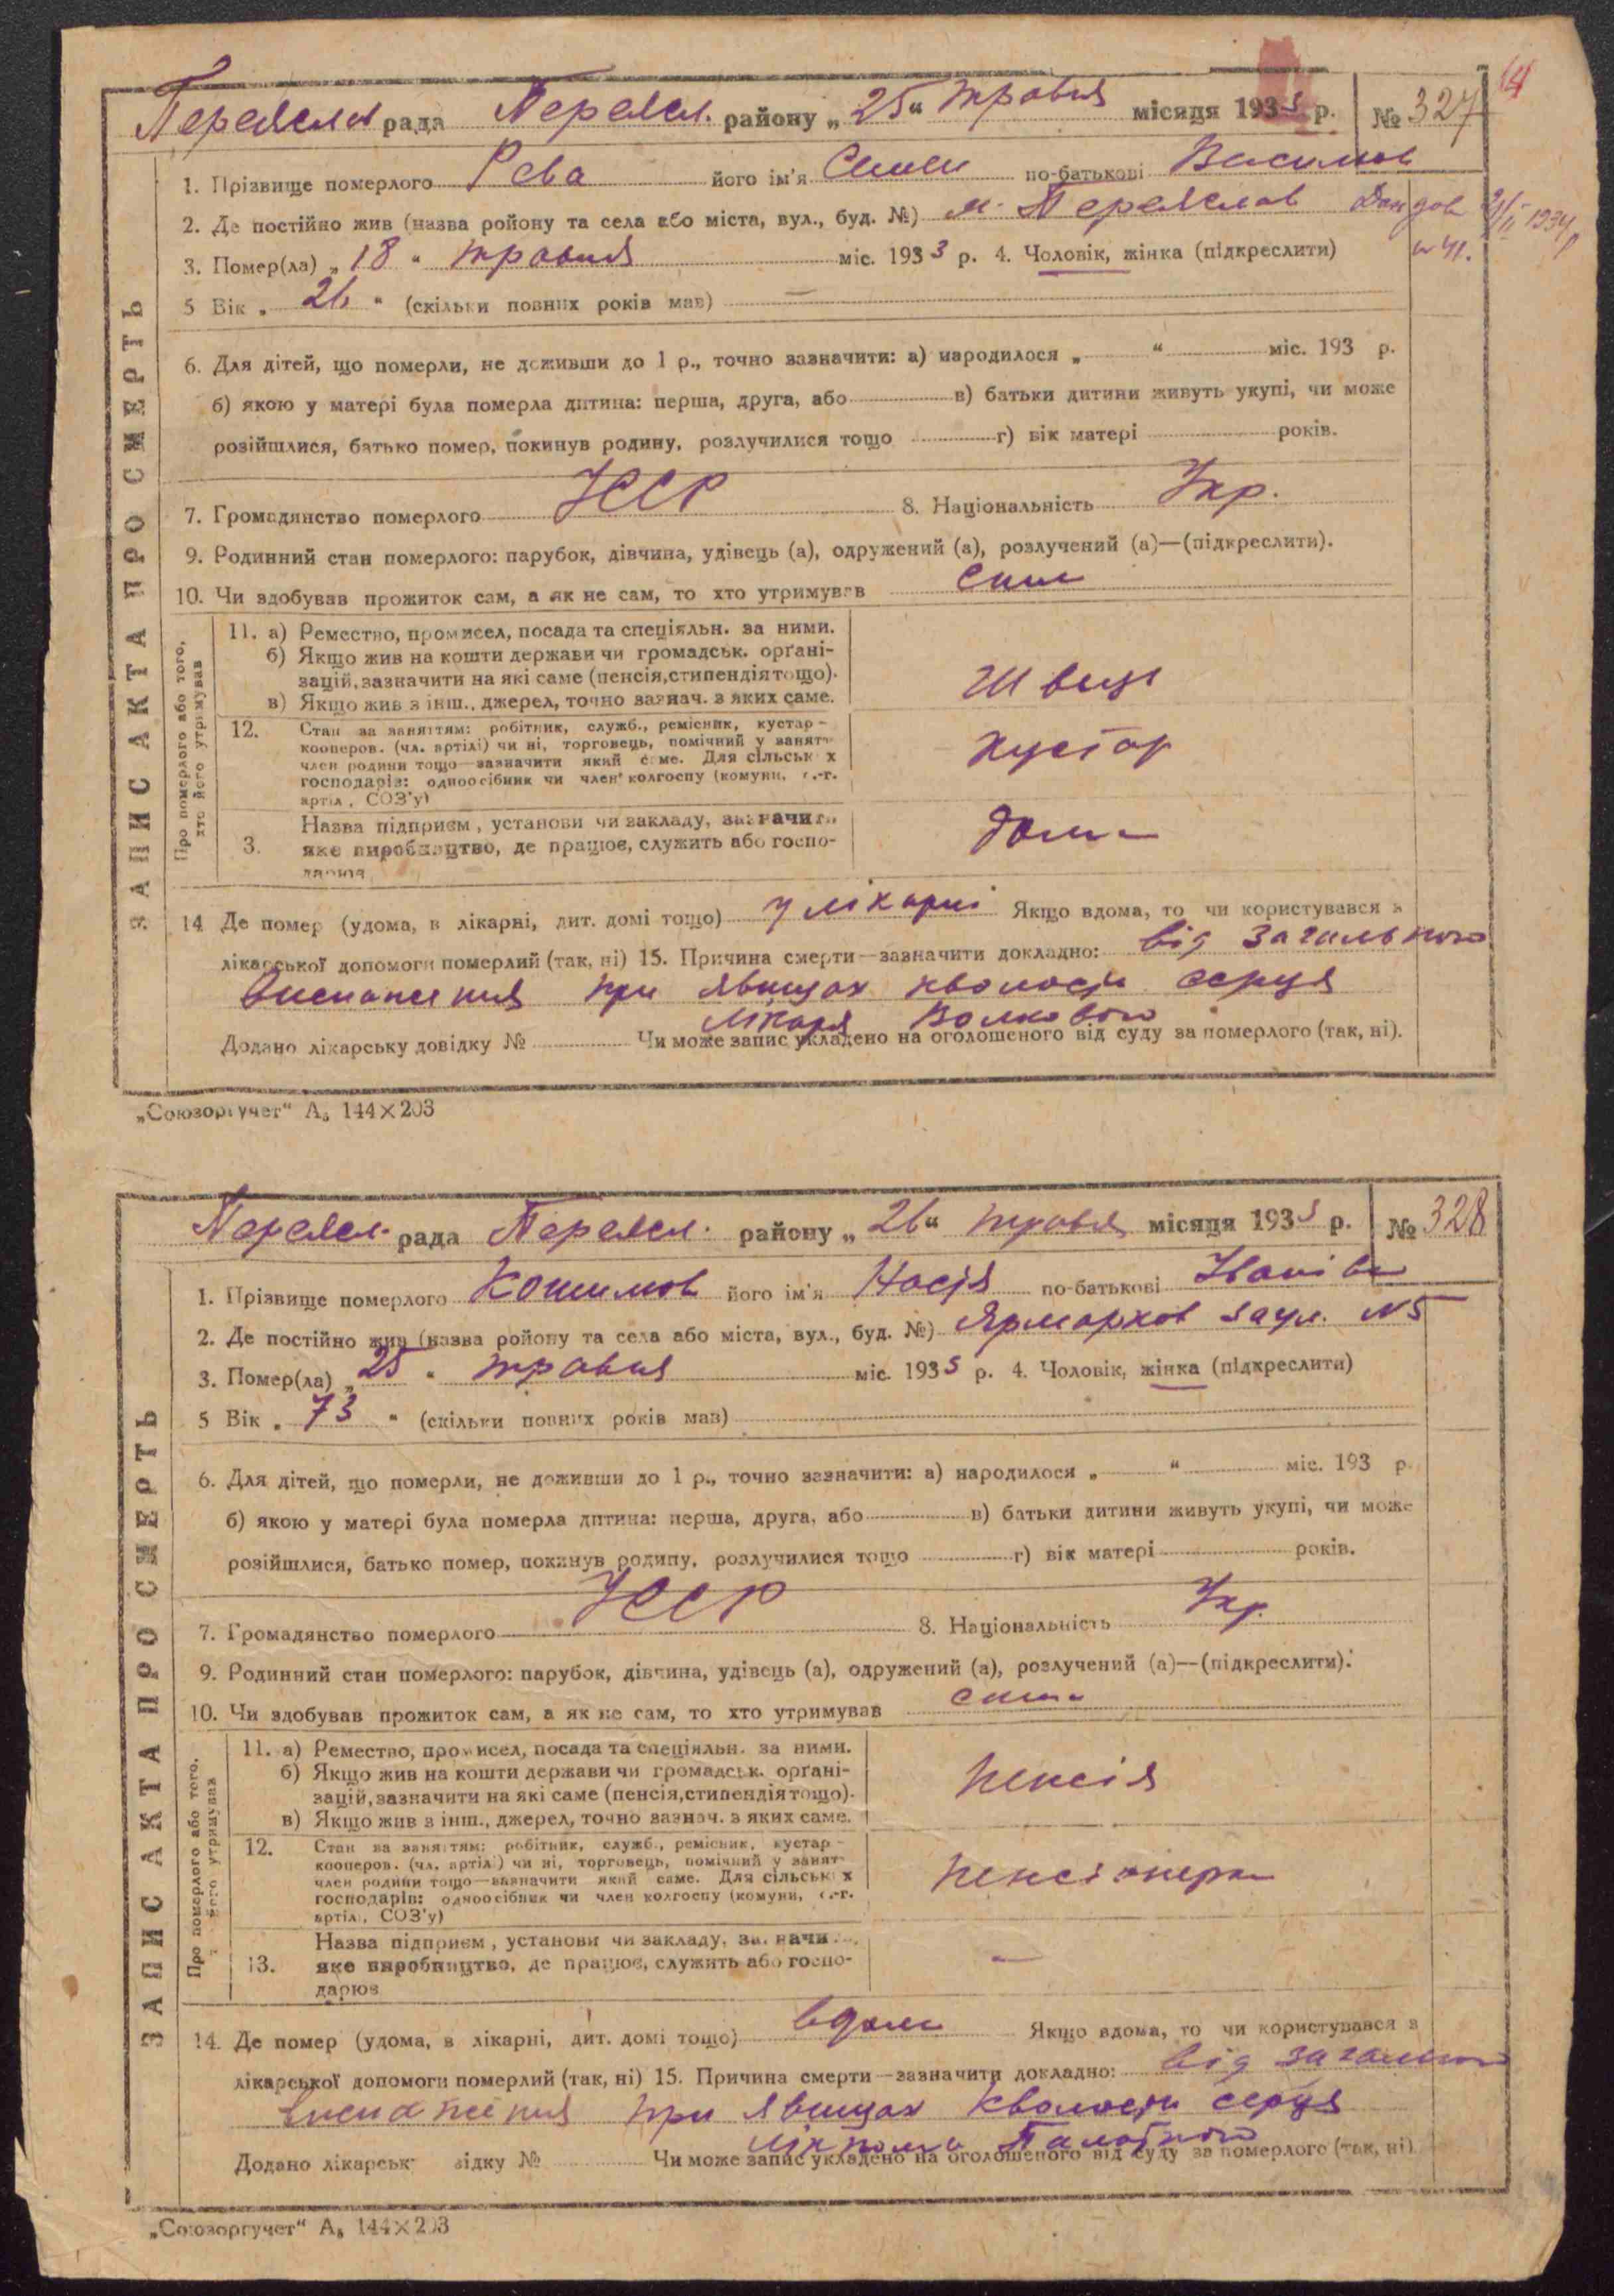 14
Переясл рада Переясл. району „25“ травня місяця 1933 р. № 327
1. Прізвище померлого Рева його ім'я Семен по-батькові Васильов
2. Де постійно жив (назва ройону та села або міста, вул., буд. №) м. Переяслов
3. Помер(ла) „18“ травня міс. 1933 р. 4. Чоловік, жінка (підкреслити)
5 Вік „26“ (скільки повних років мав) —
6. Для дітей, що померли, не доживши до 1 р., точно зазначити: а) народилося „ “ міс. 193 р.
б) якою у матері була померла дитина: перша, друга, або в) батьки дитини живуть укупі, чи може
розійшлися, батько помер, покинув родину, розлучилися тощо г) вік матері років.
7. Громадянство померлого УССР 8. Національність Укр.
9. Родинний стан померлого: парубок, дівчина, удівець (а), одружений (а), розлучений (а)—(підкреслити).
10. Чи здобував прожиток сам, а як не сам, то хто утримував сам
ЗАПИС АКТА ПРО СМЕРТЬ
Про померлого або того,
хто його утримував
11. а) Ремество, промисел, посада та спеціяльн. за ними.
б) Якщо жив на кошти держави чи громадськ. орґані-
зацій, зазначити на які саме (пенсія, стипендія тощо).
в) Якщо жив з інш., джерел, точно зазнач. з яких саме.
Швець
12. Стан за заняттям: робітник, служб., ремісник, кустар -
кооперов. (чл. артілі) чи ні, торговець, помічний у занятт
член родини тощо—зазначити який саме. Для сільськ х
господарів: одноосібник чи член колгоспу (комуни, с.-г.
артіл, СОЗ'у)
кустар
3. Назва підприєм, установи чи закладу, зазначити
яке виробництво, де працює, служить або госпо-
дарює
дома
14 Де помер (удома, в лікарні, дит. домі тощо) у лікарні Якщо вдома, то чи користувався з
лікарської допомоги померлий (так, ні) 15. Причина смерти—зазначити докладно: від загального
виснаження при явищах кволости серця
лікаря
Додано лікарську довідку № Чи може запис укладено на оголошеного від суду за померлого (так, ні).
„Союзоргучет“ А₅ 144×203
Переясл. рада Переясл. району „26“ травня місяця 1933 р. № 328
1. Прізвище померлого його ім'я Настя по-батькові Іванівн
2. Де постійно жив (назва ройону та села або міста, вул., буд. №) Ярмарков заул. №5
3. Помер(ла) „25“ травня міс. 1933 р. 4. Чоловік, жінка (підкреслити)
5 Вік „73“ (скільки повних років мав)
6. Для дітей, що померли, не доживши до 1 р., точно зазначити: а) народилося „ “ міс. 193 р.
б) якою у матері була померла дитина: перша, друга, або в) батьки дитини живуть укупі, чи може
розійшлися, батько помер, покинув родину, розлучилися тощо г) вік матері років.
7. Громадянство померлого УССР 8. Національність Укр.
9. Родинний стан померлого: парубок, дівчина, удівець (а), одружений (а), розлучений (а)—(підкреслити).
10. Чи здобував прожиток сам, а як не сам, то хто утримував сама
ЗАПИС АКТА ПРО СМЕРТЬ
Про померлого або того,
його утримував
11. а) Ремество, промисел, посада та спеціяльн. за ними.
б) Якщо жив на кошти держави чи громадськ. орґані-
зацій, зазначити на які саме (пенсія, стипендія тощо).
в) Якщо жив з інш., джерел, точно зазнач. з яких саме.
пенсія
12. Стан за заняттям: робітник, служб., ремісник, кустар -
кооперов. (чл. артілі) чи ні, торговець, помічний у занят
член родини тощо—зазначити який саме. Для сільськ х
господарів: одноосібник чи член колгоспу (комуни, с.-г.
артіл, СОЗ'у)
пенсіонерка
13. Назва підприєм, установи чи закладу, зазначи
яке виробництво, де працює, служить або госпо-
дарює
—
14. Де помер (удома, в лікарні, дит. домі тощо) вдома Якщо вдома, то чи користувався з
лікарської допомоги померлий (так, ні) 15. Причина смерти—зазначити докладно: від загального
виснаження при явищах кволости серця
Додано лікарськ відку № Чи може запис укладено на оголошеного від суду за померлого (так, ні)
„Союзоргучет“ А₅ 144×203